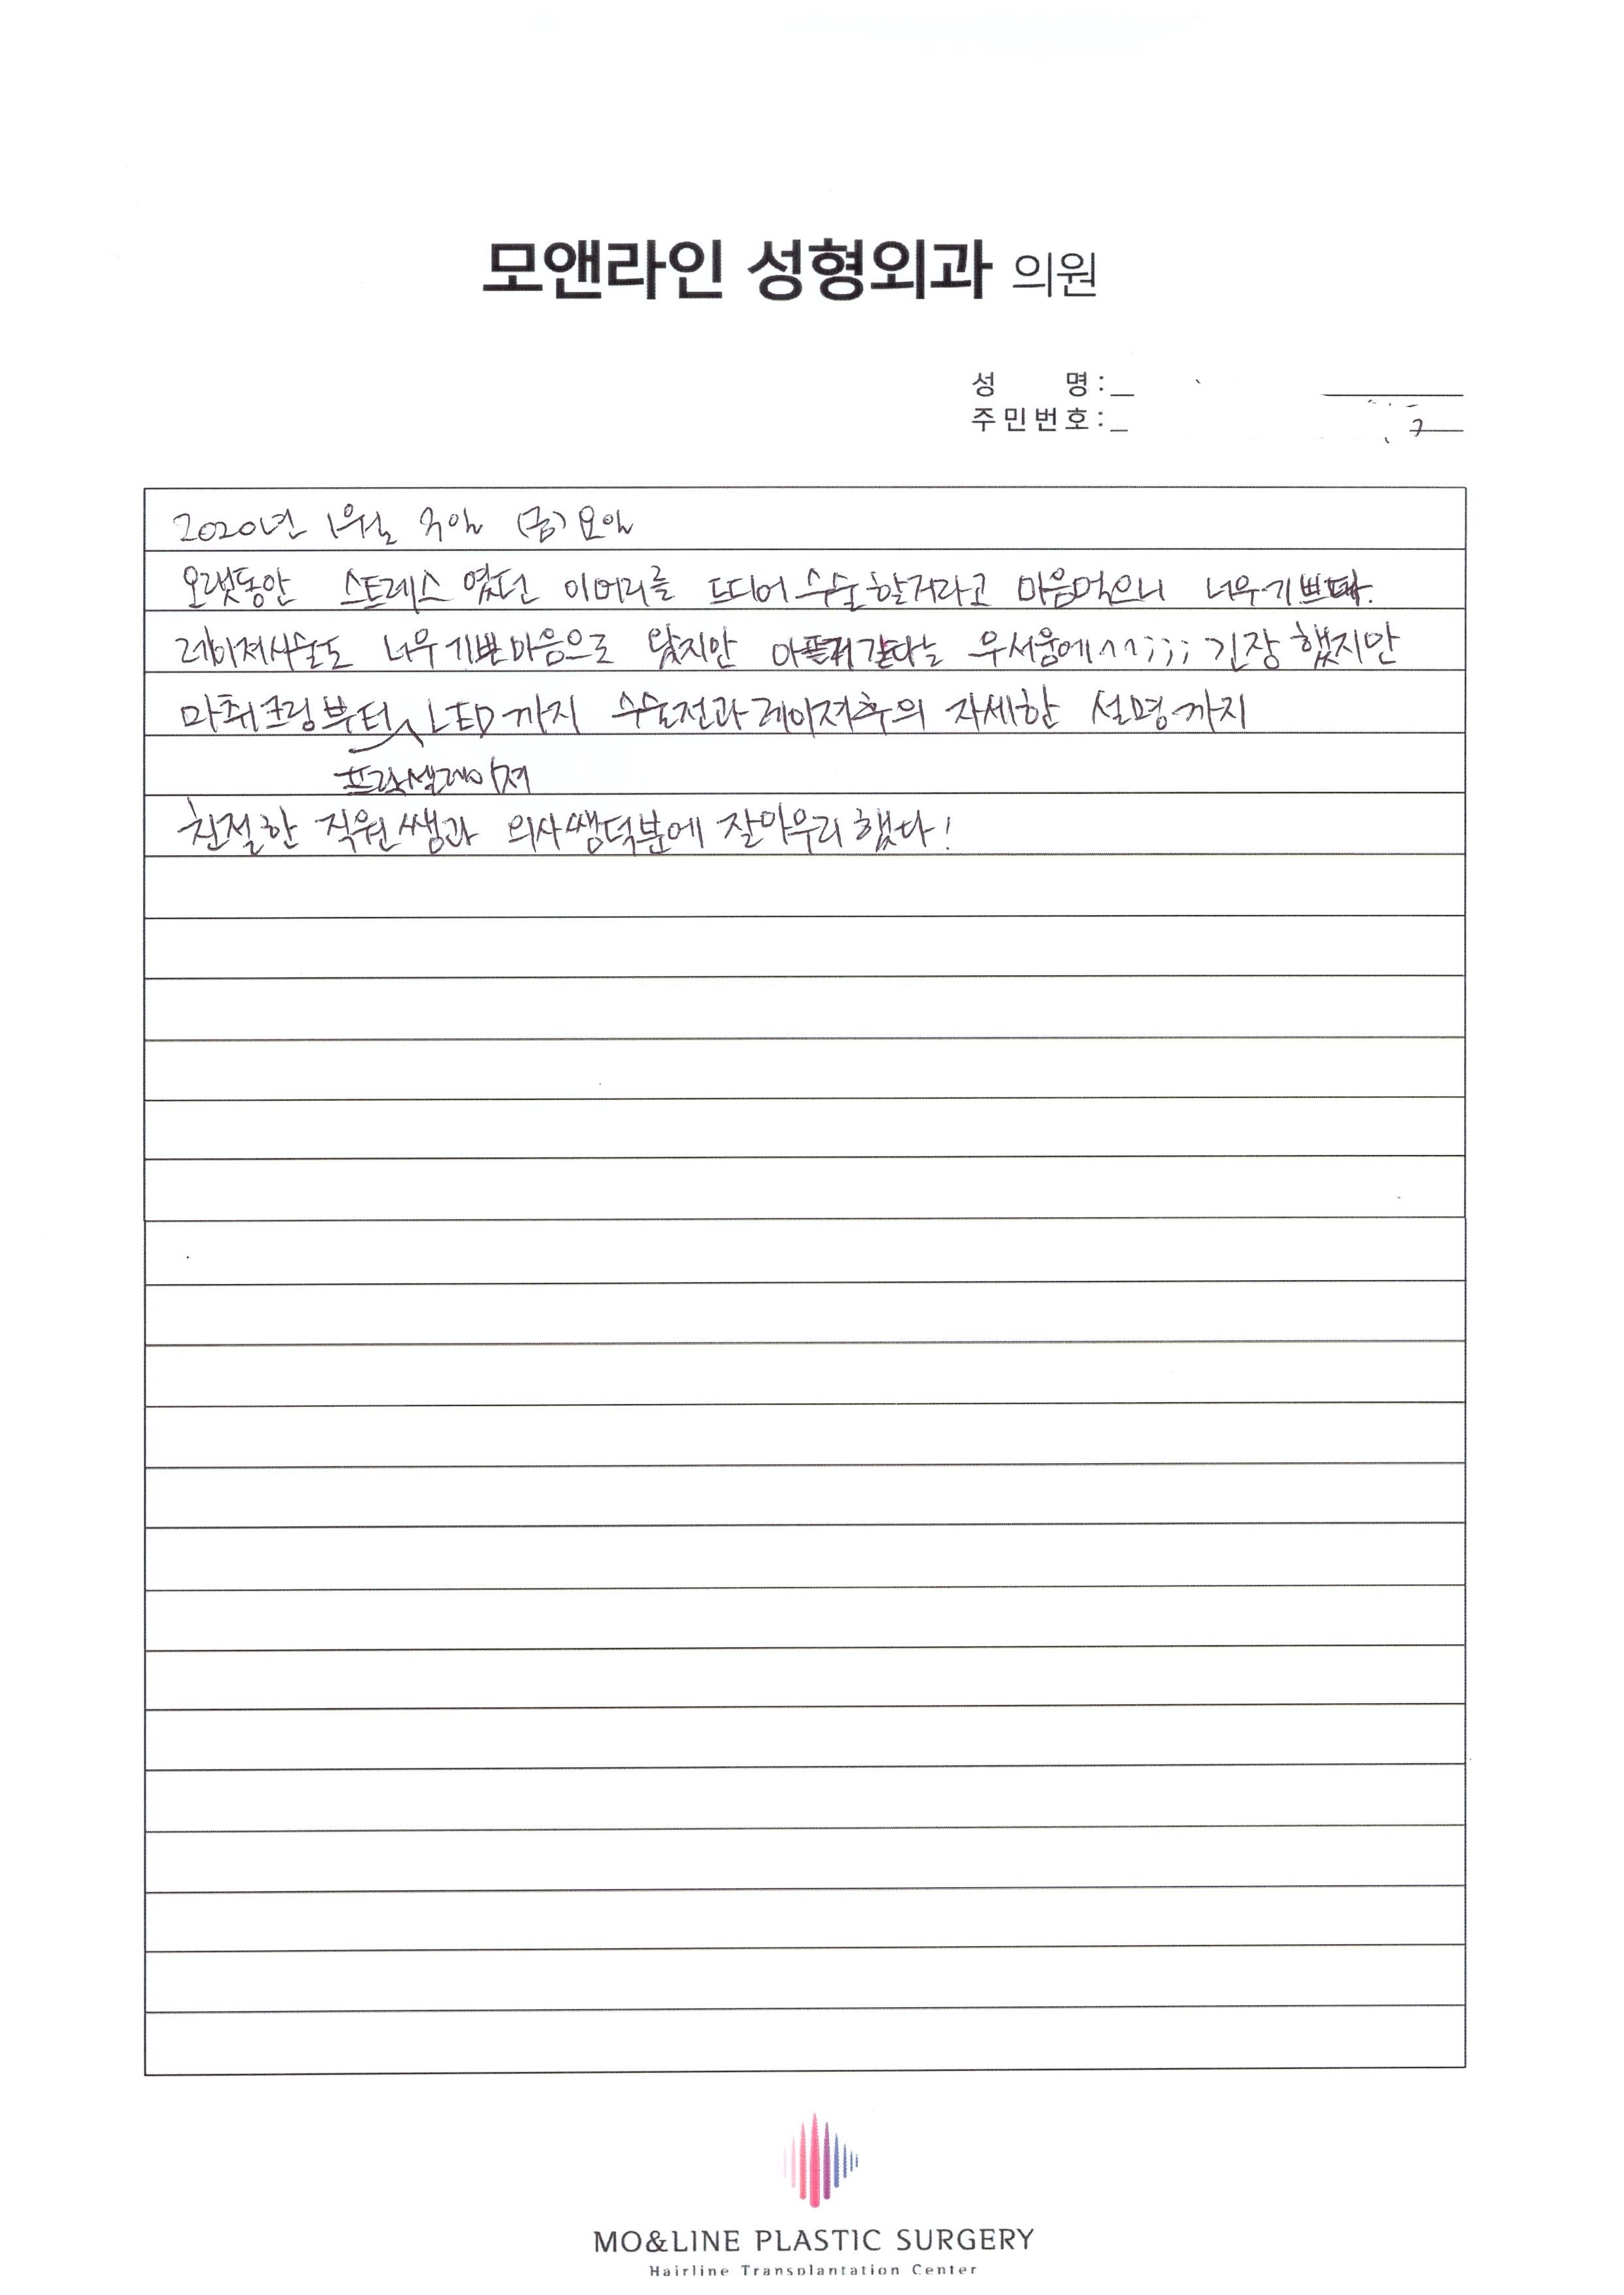 모앤라인 성형외과 의원
성 명 :
주민번호 :
2020년 10월 (금)요일
오랫동안 스트레스였던 이머리를 드디어 수술할거라고 마음먹으니 너무기쁘다.
레이져시술도 너무기쁜마음으로 왔지만 아플거같다는 무서움에^^;;; 긴장했지만
마취크림부터 LED까지 수술전과 레이져후의 자세한 설명까지
프락셀레이져
친절한 직원쌤과 의사쌤덕분에 잘마무리했다!
MO&LINE PLASTIC SURGERY
Hairline Transplantation Center